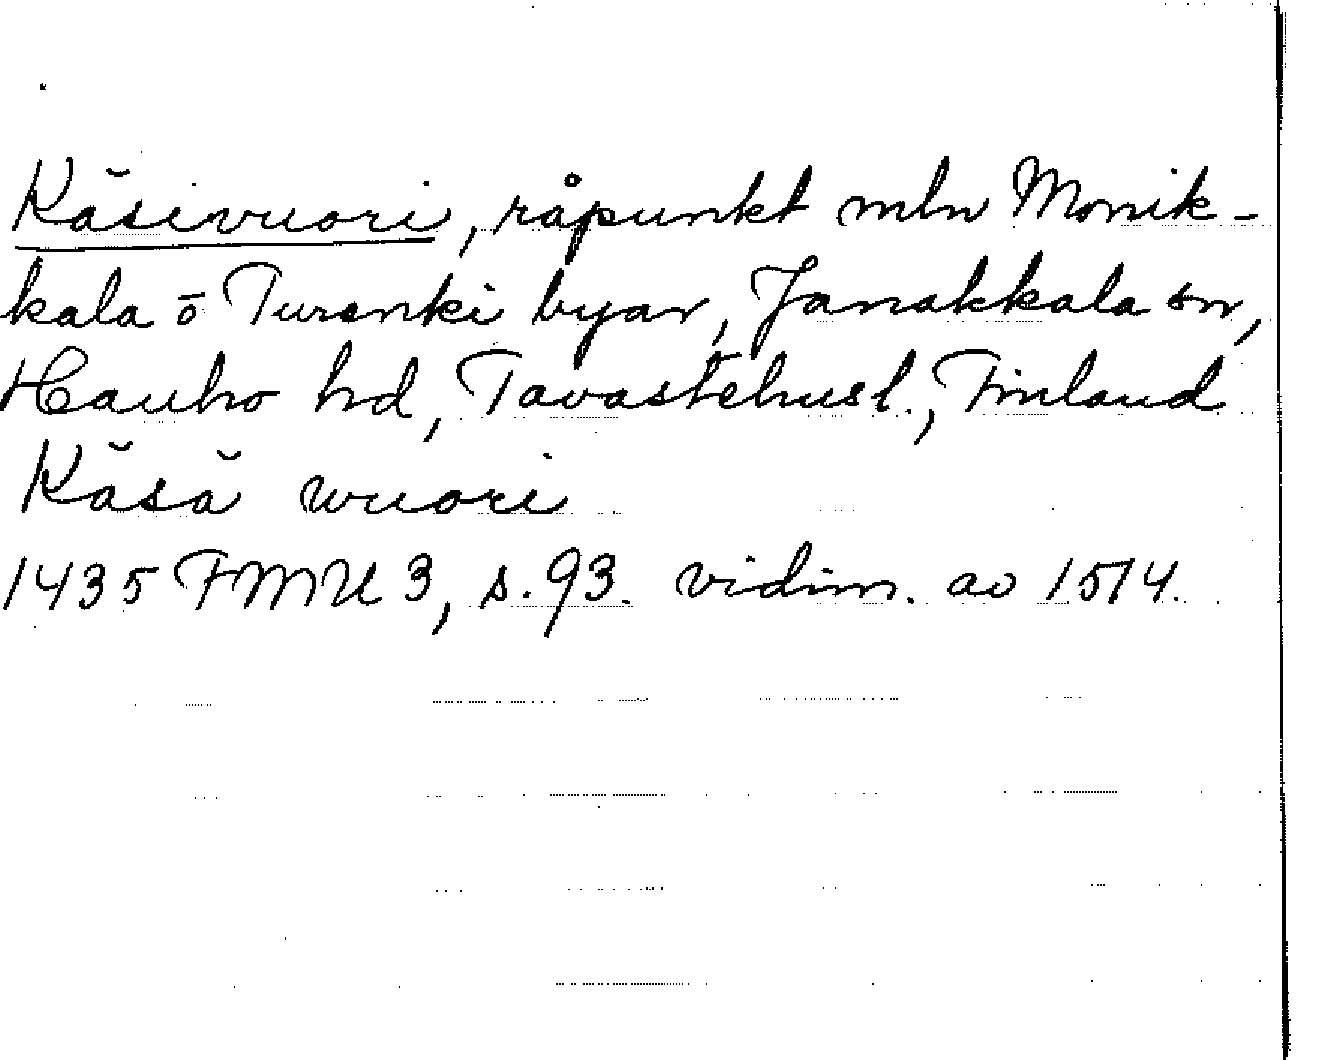 Käsivuori, råpunkt mln Monik-
kala o Turenki byar, Janakkala sn,
Hauho hd, Tavastehusl., Finland
Käsä wuori
1435 FMU 3, s. 93. vidim. av 1514.